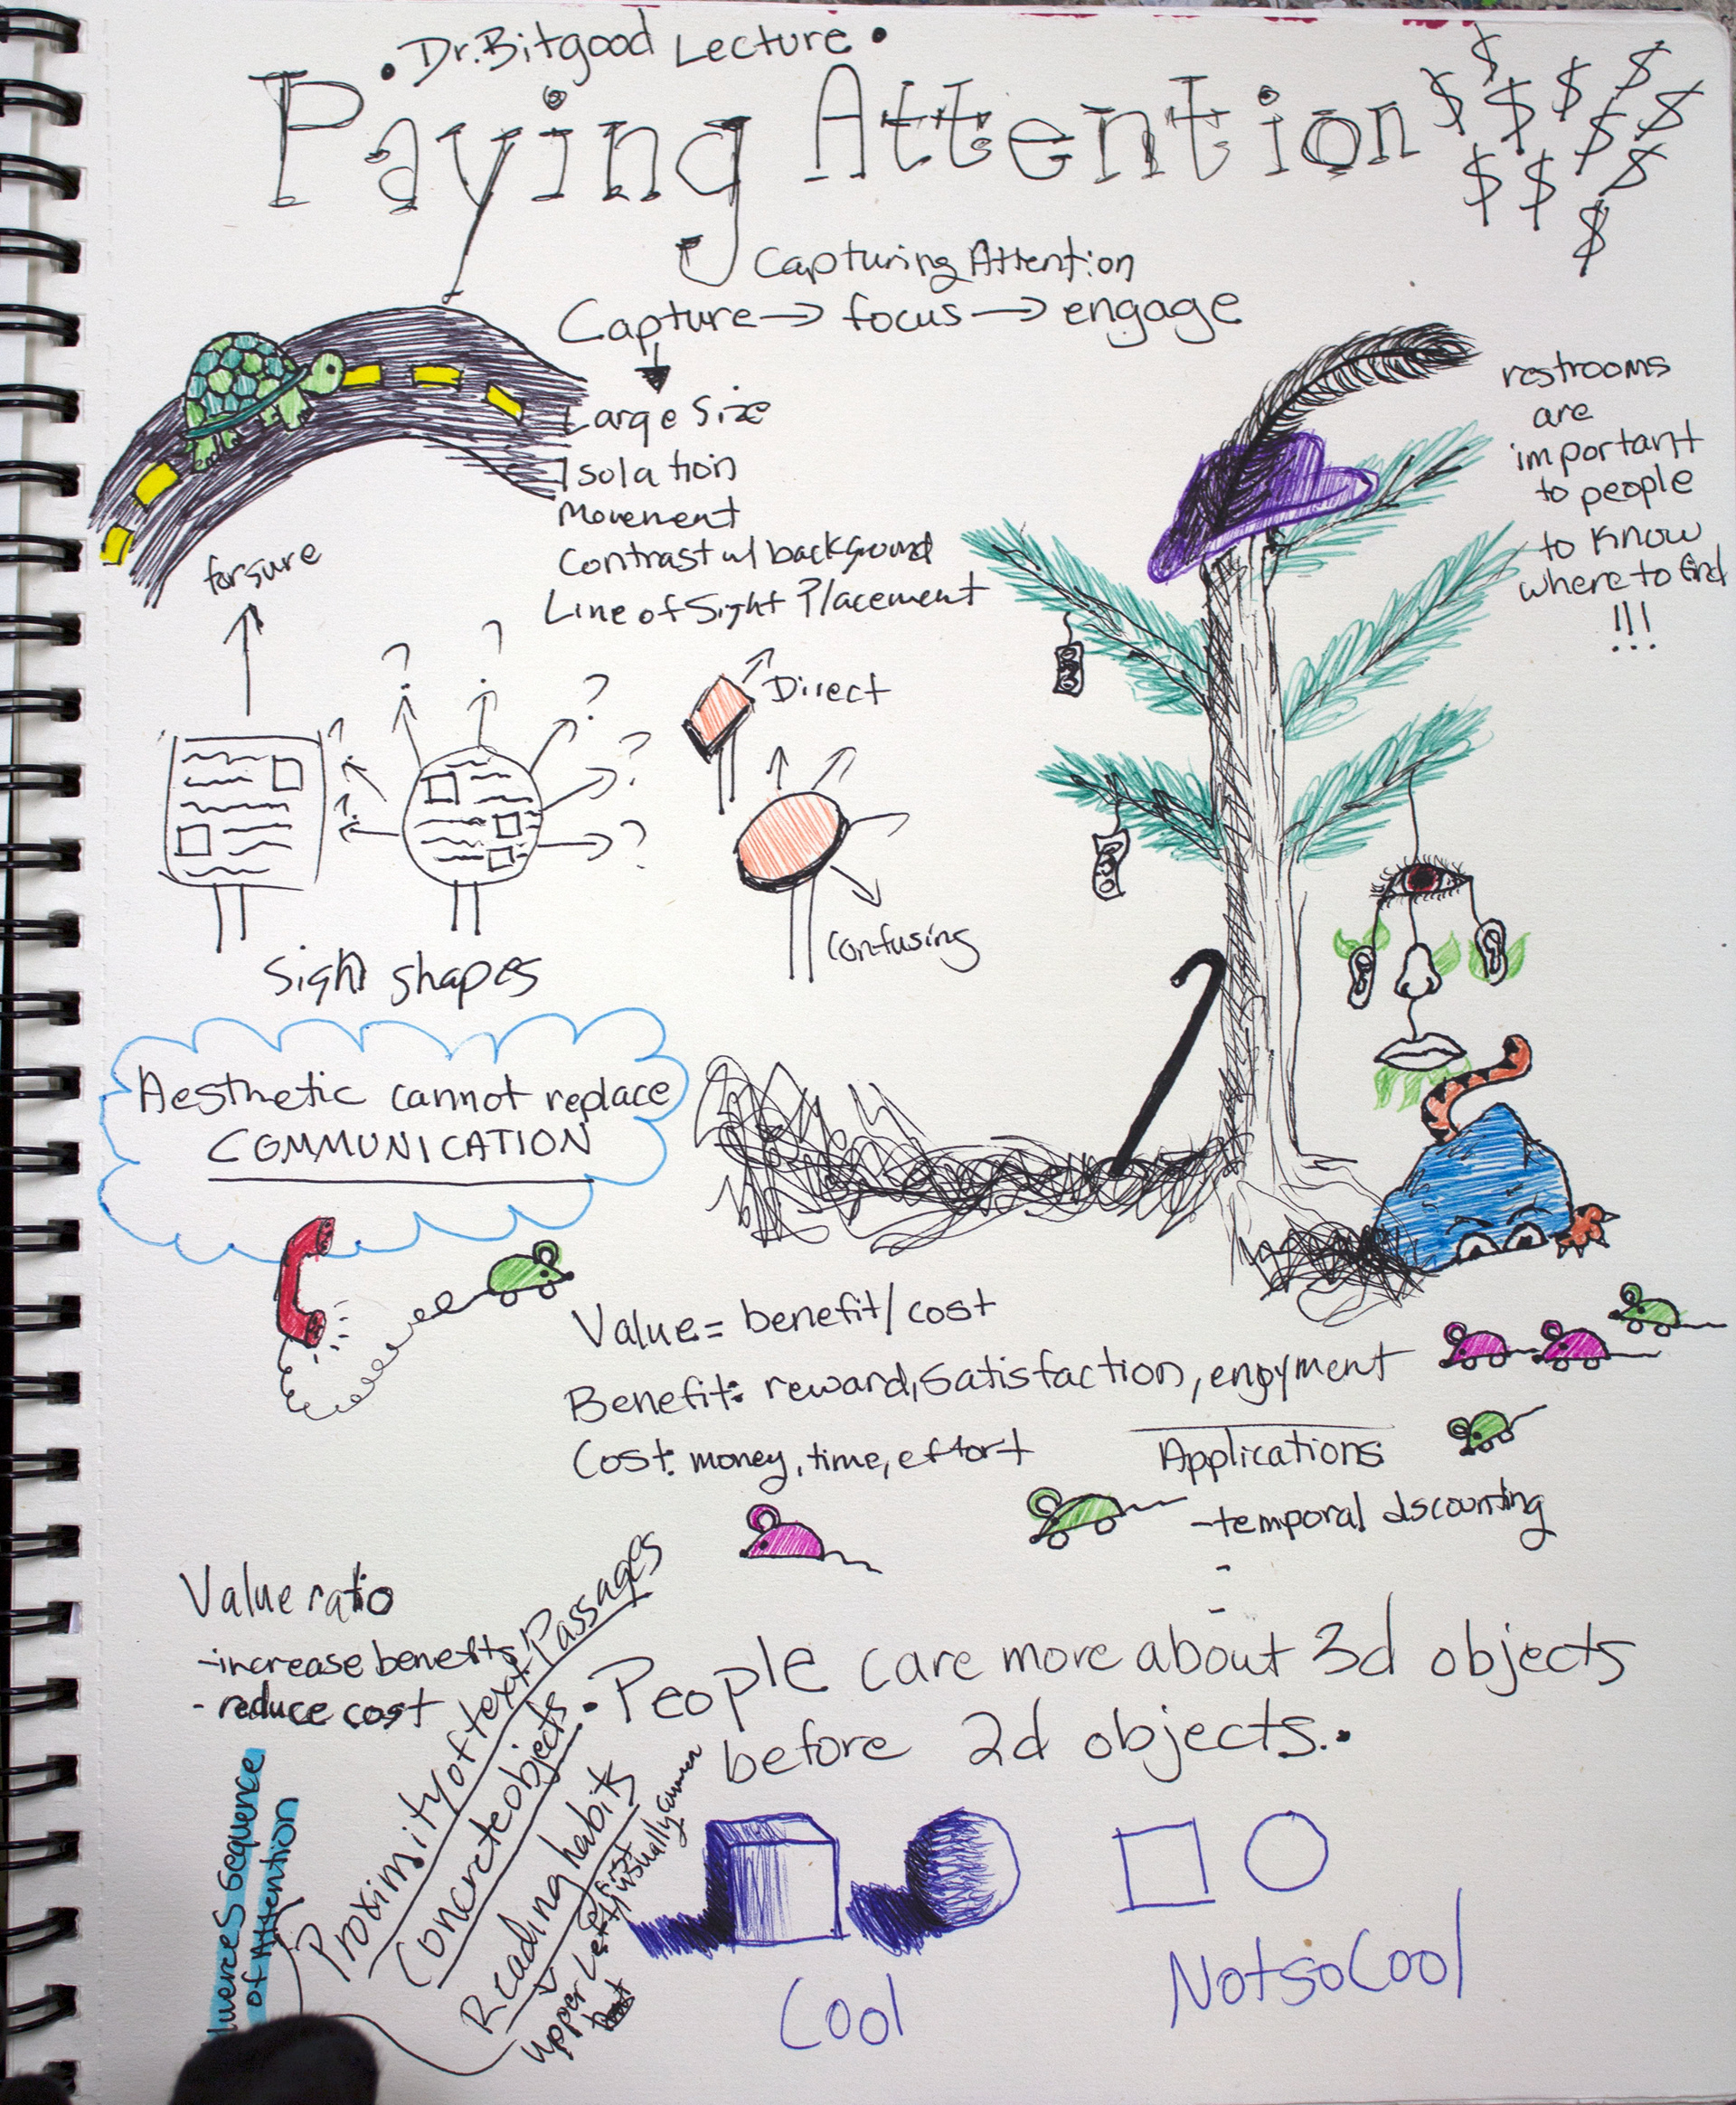 • Dr. Bitgood Lecture •
Paying Attention $ $ $ $ $ $ $ $ $ $ $
Capturing Attention
Capture → focus → engage
Large Size
Isolation
Movement
Contrast w/ background
Line of Sight Placement
restrooms
are
important
to people
to know
where to find
!!!
for sure
? ? ? ? ? ? ?
Direct
Confusing
Sign shapes
Aesthetic cannot replace
COMMUNICATION
Value = benefit / cost
Benefit: reward, satisfaction, enjoyment
Cost: money, time, effort
Applications
- temporal discounting
-
-
Value ratio
- increase benefits
- reduce cost
• People care more about 3d objects
before 2d objects. •
Sequence
of Attention
Proximity of text Passages
Concrete objects
Reading habits
upper left first
visually
Cool
Not so Cool